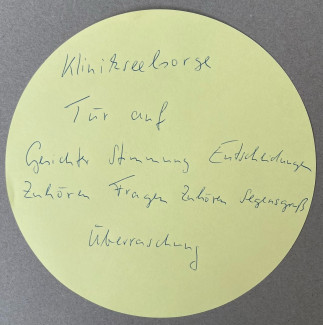 Klinikseelsorge
Tür auf
Gesichter Stimmung Entscheidungen
Zuhören Fragen Zuhören Segensgruß
Überraschung